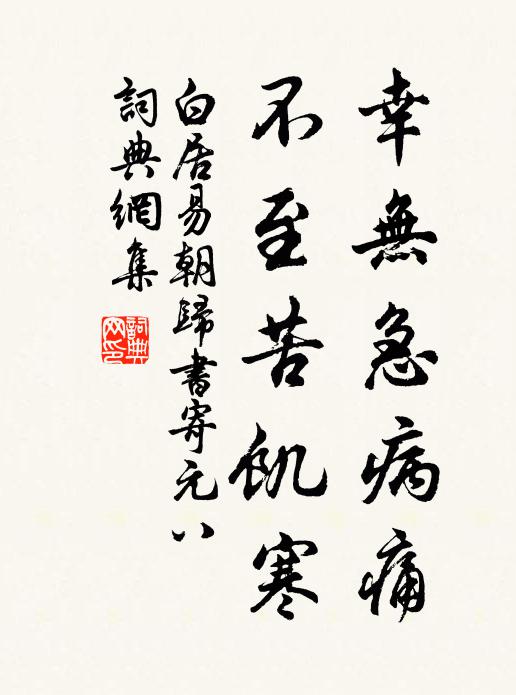 幸無急病痛
不至苦飢寒
白居易朝歸書寄元八
詞典網集
詞典網印